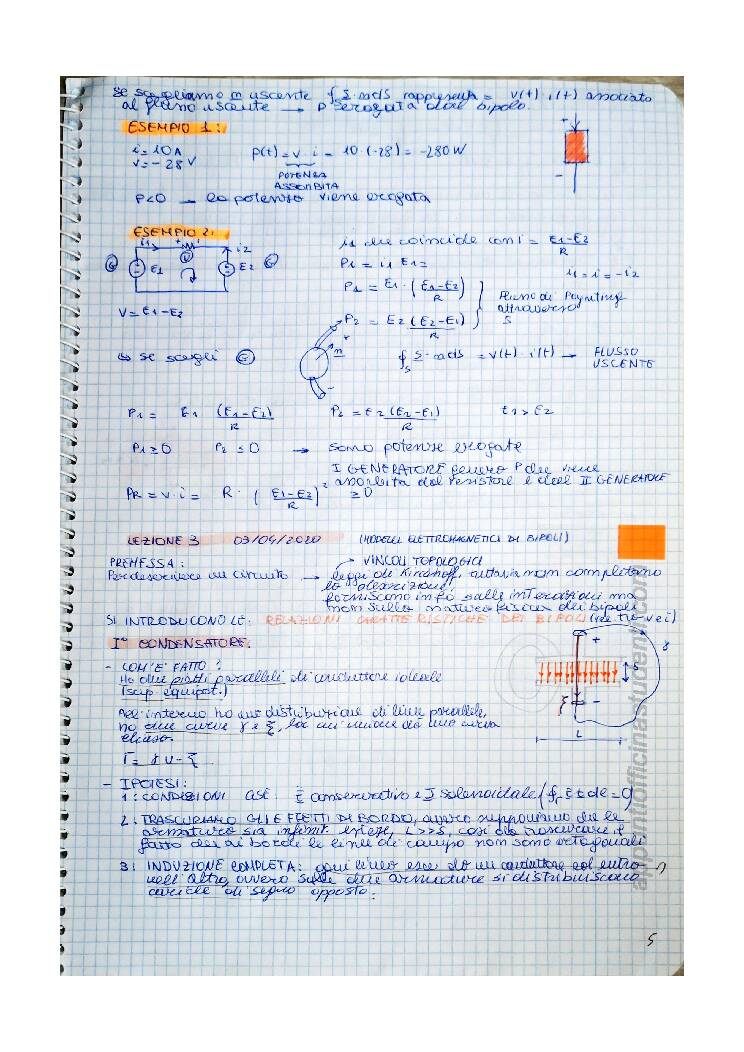 se scegliamo n uscente ∮ S·n dS rappresenta = v(t)·i(t) associato
al flusso uscente → p erogata dal bipolo.
ESEMPIO 1:
i = 10 A
v = -28 V
p(t) = v · i = 10·(-28) = -280 W
POTENZA
ASSORBITA
+
-
P<0 → la potenza viene erogata
ESEMPIO 2:
i1 + i i2
E1 E2
V = E1-E2
i1 che coincide con i = E1-E2 / R
P1 = i1 E1 =
i1 = i = -i2
P1 = E1 · (E1-E2 / R)
P2 = E2 (E2-E1) / R
Flusso di Poynting
attraverso
S
↳ se scegli G
n
∮S S·n dS = v(t)·i(t) → FLUSSO
USCENTE
P1 = E1 (E1-E2) / R P2 = E2 (E2-E1) / R E1 > E2
P1 ≥ 0 P2 ≤ 0 → sono potenze erogate
I GENERATORE genera P che viene
assorbita dal resistore e dal II GENERATORE
PR = v·i = R · (E1-E2 / R)² ≥ 0
LEZIONE 3 03/04/2020 (MODELLI ELETTROMAGNETICI DI BIPOLI)
PREMESSA: VINCOLI TOPOLOGICI
Per descrivere un circuito → leggi di Kirchoff, tuttavia non completano
la descrizione,
forniscono info sulle interazioni ma
non sulla natura fisica dei bipoli
SI INTRODUCONO LE: RELAZIONI CARATTERISTICHE DEI BIPOLI (rel. tra v e i)
I° CONDENSATORE:
- COM'E' FATTO:
Ho due piatti paralleli di conduttore ideale
(sup. equipot.)
All'interno ho una distribuzione di linee parallele,
ho due curve γ e ξ, la cui unione dà una curva
chiusa.
Γ = γ ∪ -ξ
+
γ
δ
ξ
-
L
- IPOTESI:
1: CONDIZIONI CASE: E conservativo e J solenoidale (∮Γ E·t dℓ = 0)
2: TRASCURIAMO GLI EFFETTI DI BORDO, ovvero supponiamo che le
armature sia infinit. estese, L>>δ, così da trascurare il
fatto che ai bordi le linee di campo non sono ortogonali
3: INDUZIONE COMPLETA: ogni linea esce da un conduttore ed entra
nell'altro, ovvero sulle due armature si distribuiscono
cariche di segno opposto.
5
appuntiofficinastudenti.com